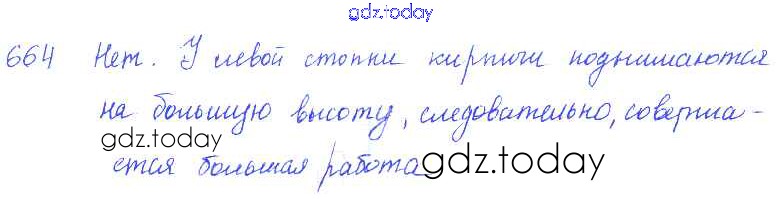 gdz.today
664 Нет. У левой стопки кирпичи поднимаются
на большую высоту, следовательно, соверша-
gdz.today
ется большая работа
gdz.today